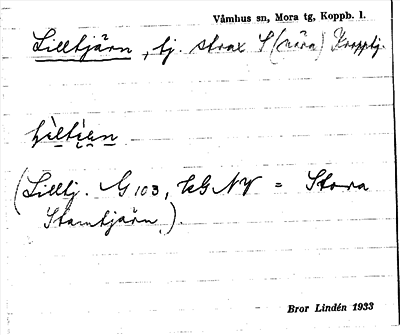 Våmhus sn, Mora tg, Koppb. l.
Lilltjärn, tj. strax S (nära) Kropptj.
(Lilltj. G 103, KG NV = Stora
Stamtjärn.)
Bror Lindén 1933